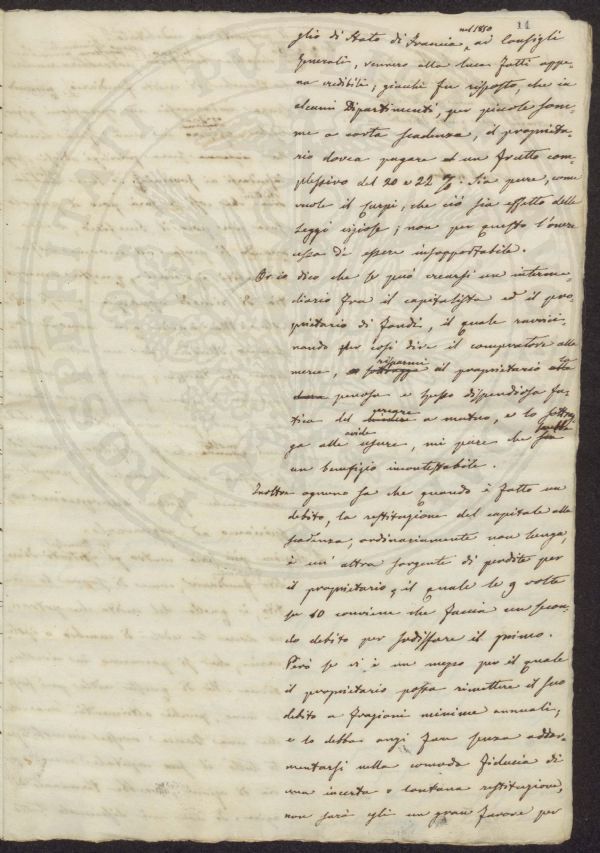 14
glio di Stato di Francia nel 1850 ai Consigli
Generali, vennero alla luce fatti appe-
na credibili; giacchè fu risposto, che in
alcuni Dipartimenti, per piccole som-
me a corta scadenza, il proprieta-
rio dovea pagare ad un frutto com-
plessivo del 20 a 22 %. Sia pure, come
vuole il, che ciò sia effetto delle
leggi viziose; non per questo l'onere
cessa di essere insopportabile.
Or io dico che se può crearsi un interme-
diario fra il capitalista ed il pro-
prietario di fondi, il quale ravvici-
nando per così dire il compratore alla
merce, risparmi al proprietario la
penosa e spesso dispendiosa fa-
tica del cercare a mutuo, e lo sottrag-
ga alle avide usure, mi pare che
un benefizio incontestabile.
Inoltre ognuno sa che quando è fatto un
debito, la restituzione del capitale alla
scadenza, ordinariamente non lunga,
è un' altra sorgente di perdite per
il proprietario, il quale le 9 volte
su 10 conviene che faccia un secon-
do debito per sodisfare il primo.
Però se vi è un mezzo per il quale
il proprietario possa rimettere il suo
debito a frazioni minime annuali,
e lo debba anzi fare senza addor-
mentarsi nella comoda fiducia di
una incerta o lontana restituzione,
non sarà egli un gran favore per